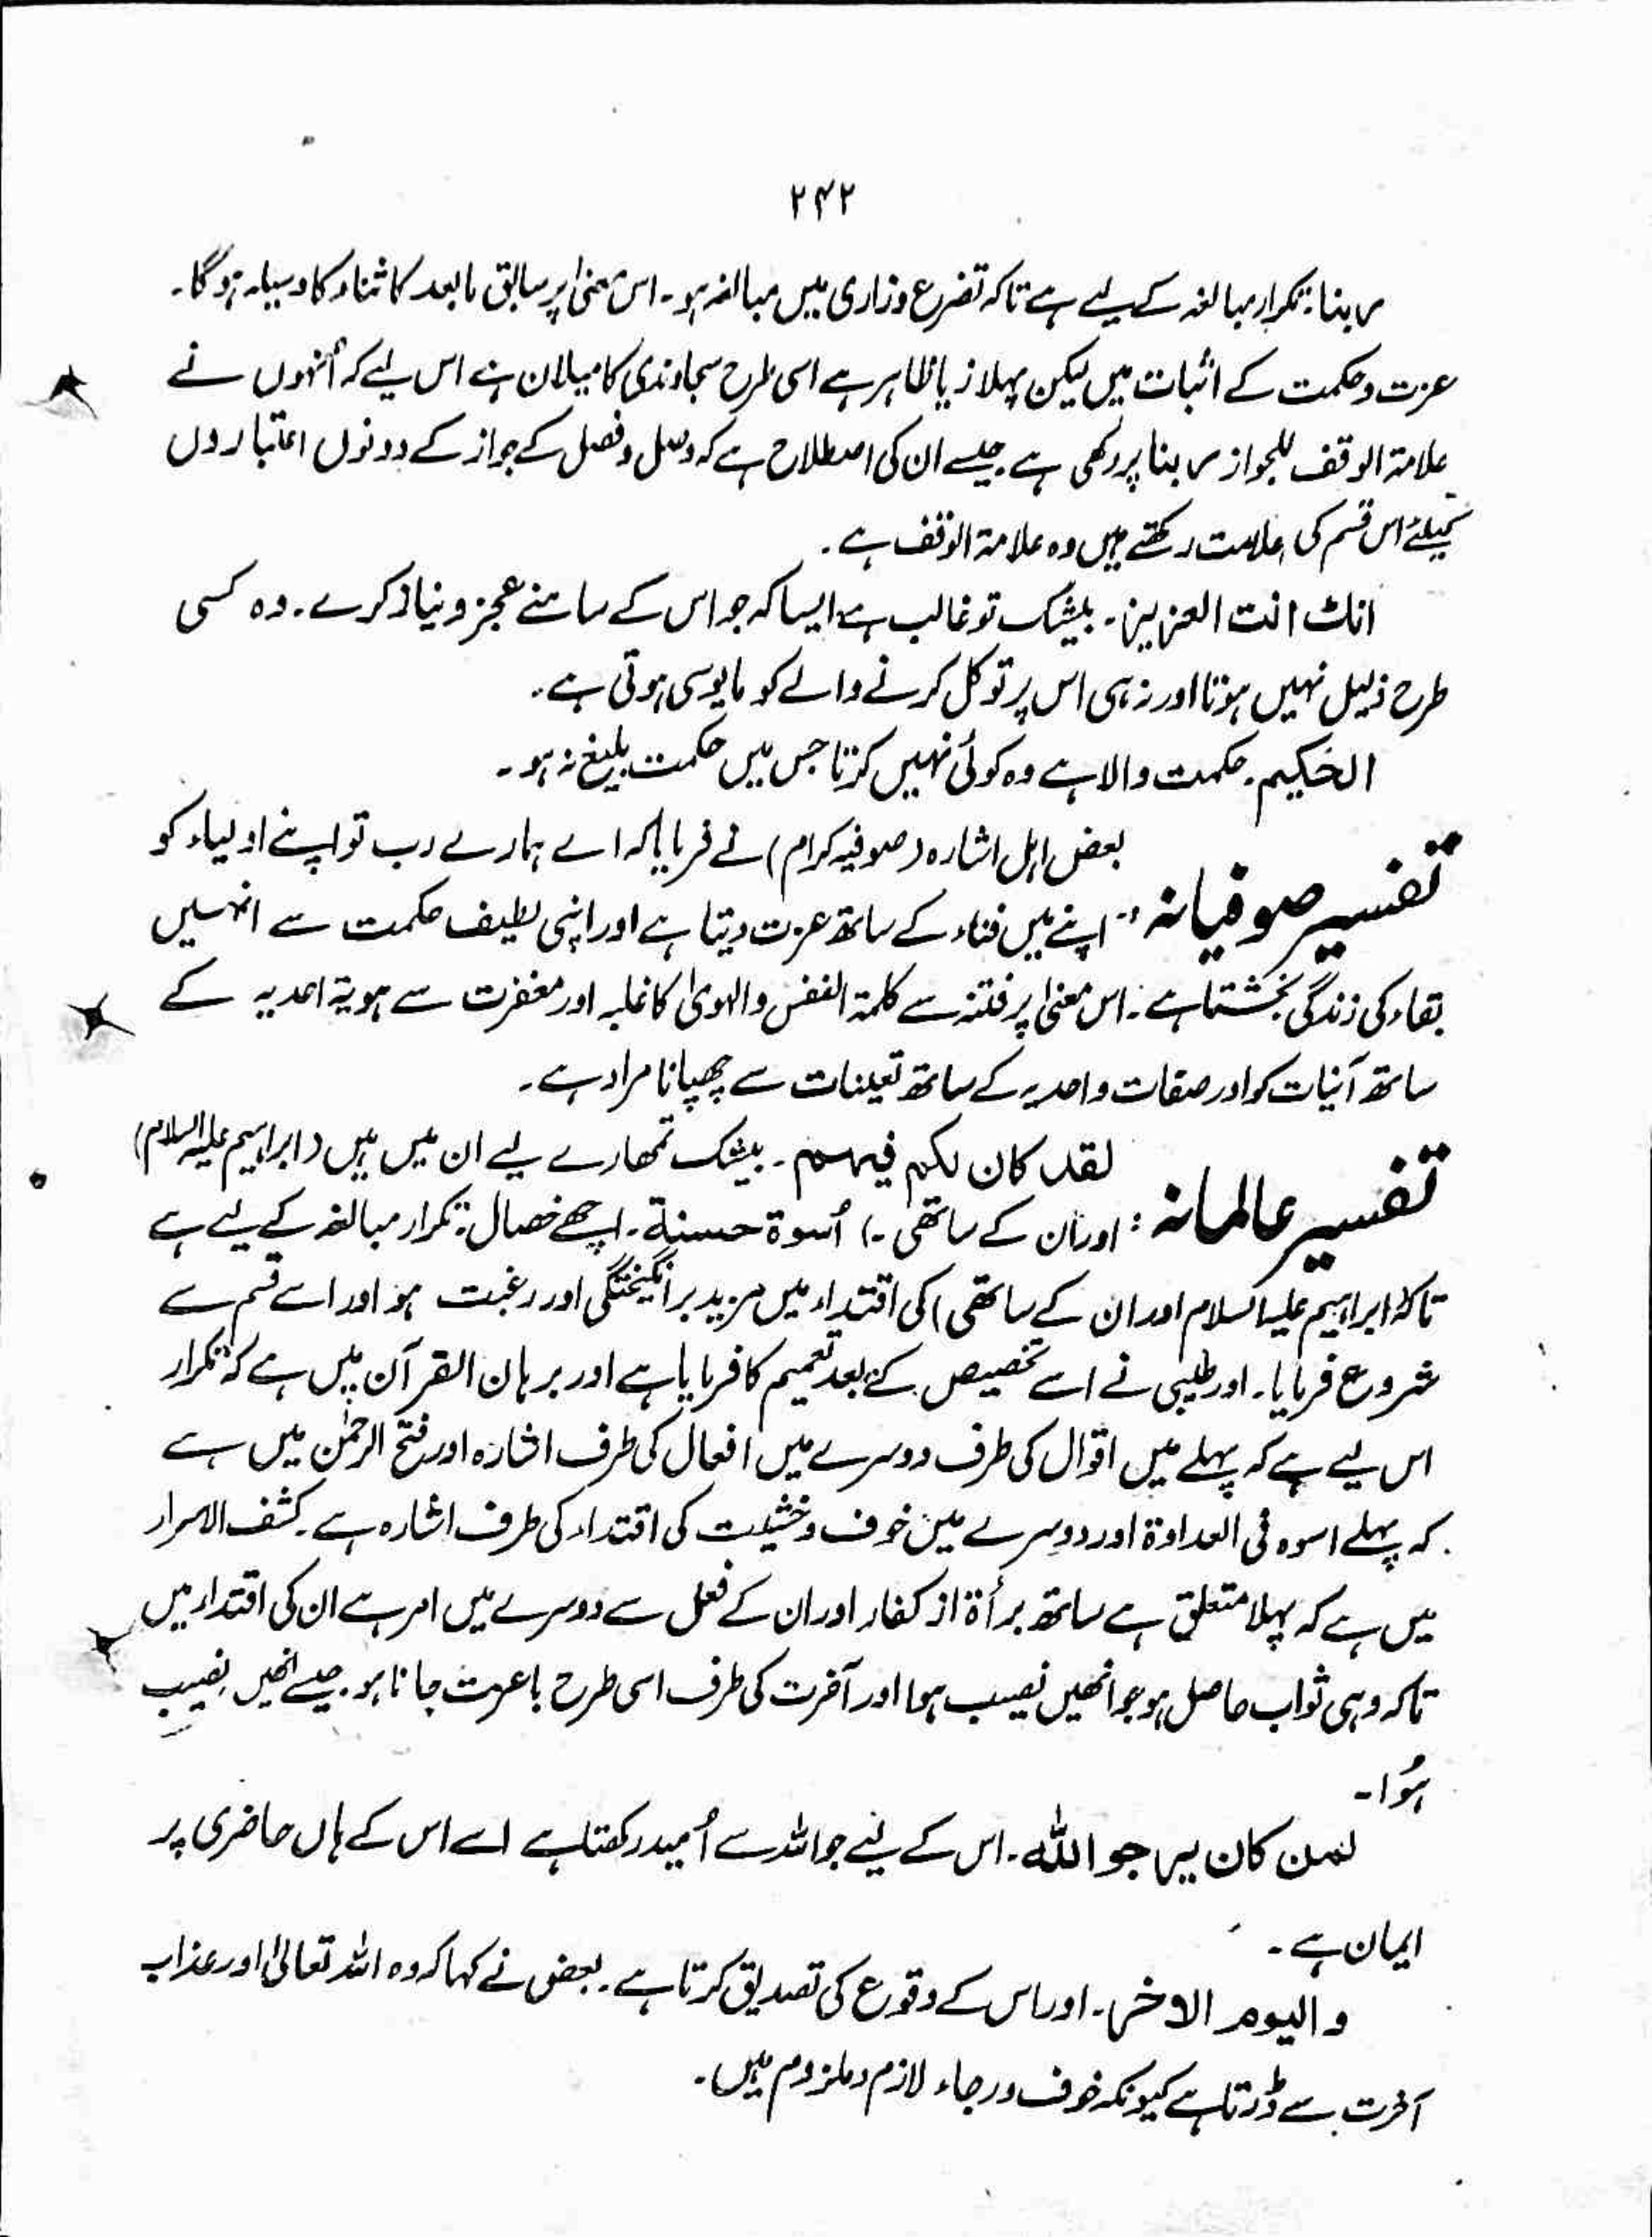 ۲۴۲
ربنا: تکرار مبالغہ کے لیے ہے تاکہ تضرع وزاری میں مبالغہ ہو۔ اس معنیٰ پر سابق مابعد کا ثناء کا وسیلہ ہوگا۔
عزت وحکمت کے اثبات میں لیکن پہلا زیاظاہر ہے اسی طرح سجاوندی کا میلان ہے اس لیے کہ اُنہوں نے
علامۃ الوقف للجواز ربنا پر رکھی ہے جیسے ان کی اصطلاح ہے کہ وصل و فصل کے جواز کے دونوں اعتباروں
کیلئے اس قسم کی علامت رکھتے ہیں وہ علامۃ الوقف ہے۔
انک انت العزیز۔ بیشک تو غالب ہے ایسا کہ جو اس کے سامنے عجز و نیاز کرے۔ وہ کسی
طرح ذلیل نہیں ہوتا اور نہ ہی اس پر توکل کرنے والے کو مایوسی ہوتی ہے۔
الحکیم۔ حکمت والا ہے وہ کوئی نہیں کرتا جس میں حکمت بلیغ نہ ہو۔
تفسیر صوفیانہ: بعض اہل اشارہ (صوفیہ کرام) نے فرمایا کہ اے ہمارے رب تو اپنے اولیاء کو
اپنے میں فناء کے ساتھ عزت دیتا ہے اور اپنی لطیف حکمت سے انہیں
بقاء کی زندگی بخشتا ہے۔ اس معنیٰ پر فتنہ سے کلمۃ النفس والہویٰ کا غلبہ اور مغفرت سے ہویۃ احدیہ کے
ساتھ آنیات کو اور صفات واحدیہ کے ساتھ تعینات سے چھپانا مراد ہے۔
تفسیر عالمانہ: لقد کان لکم فیھم۔ بیشک تمھارے لیے ان میں ہیں (ابراہیم علیہ السلام)
اور ان کے ساتھی۔) اُسوۃ حسنۃ۔ اچھے خصال: تکرار مبالغہ کے لیے ہے
تاکہ ابراہیم علیہ السلام اور ان کے ساتھی) کی اقتداء میں مزید برانگیختگی اور رغبت ہو اور اسے قسم سے
شروع فرمایا۔ اور طیبی نے اسے تخصیص کے بعد تعمیم کا فرمایا ہے اور برہان القرآن میں ہے کہ تکرار
اس لیے ہے کہ پہلے میں اقوال کی طرف دوسرے میں افعال کی طرف اشارہ اور فتح الرحمٰن میں ہے
کہ پہلے اسوہ فی العداوۃ اور دوسرے میں خوف وخشیت کی اقتداء کی طرف اشارہ ہے۔ کشف الاسرار
میں ہے کہ پہلا متعلق ہے ساتھ برأۃ از کفار اور ان کے فعل سے دوسرے میں امر ہے ان کی اقتداء میں
تاکہ وہی ثواب حاصل ہو جو انھیں نصیب ہوا اور آخرت کی طرف اسی طرح باعزت جانا ہو۔ جیسے انھیں نصیب
ہُوا۔
لمن کان یرجو اللہ۔ اس کے لیے جو اللہ سے اُمید رکھتا ہے اے اس کے ہاں حاضری پر
ایمان ہے۔
والیوم الاخر۔ اور اس کے وقوع کی تصدیق کرتا ہے۔ بعض نے کہا کہ وہ اللہ تعالیٰ اور عذاب
آخرت سے ڈرتا ہے کیونکہ خوف ورجاء لازم وملزوم ہیں۔